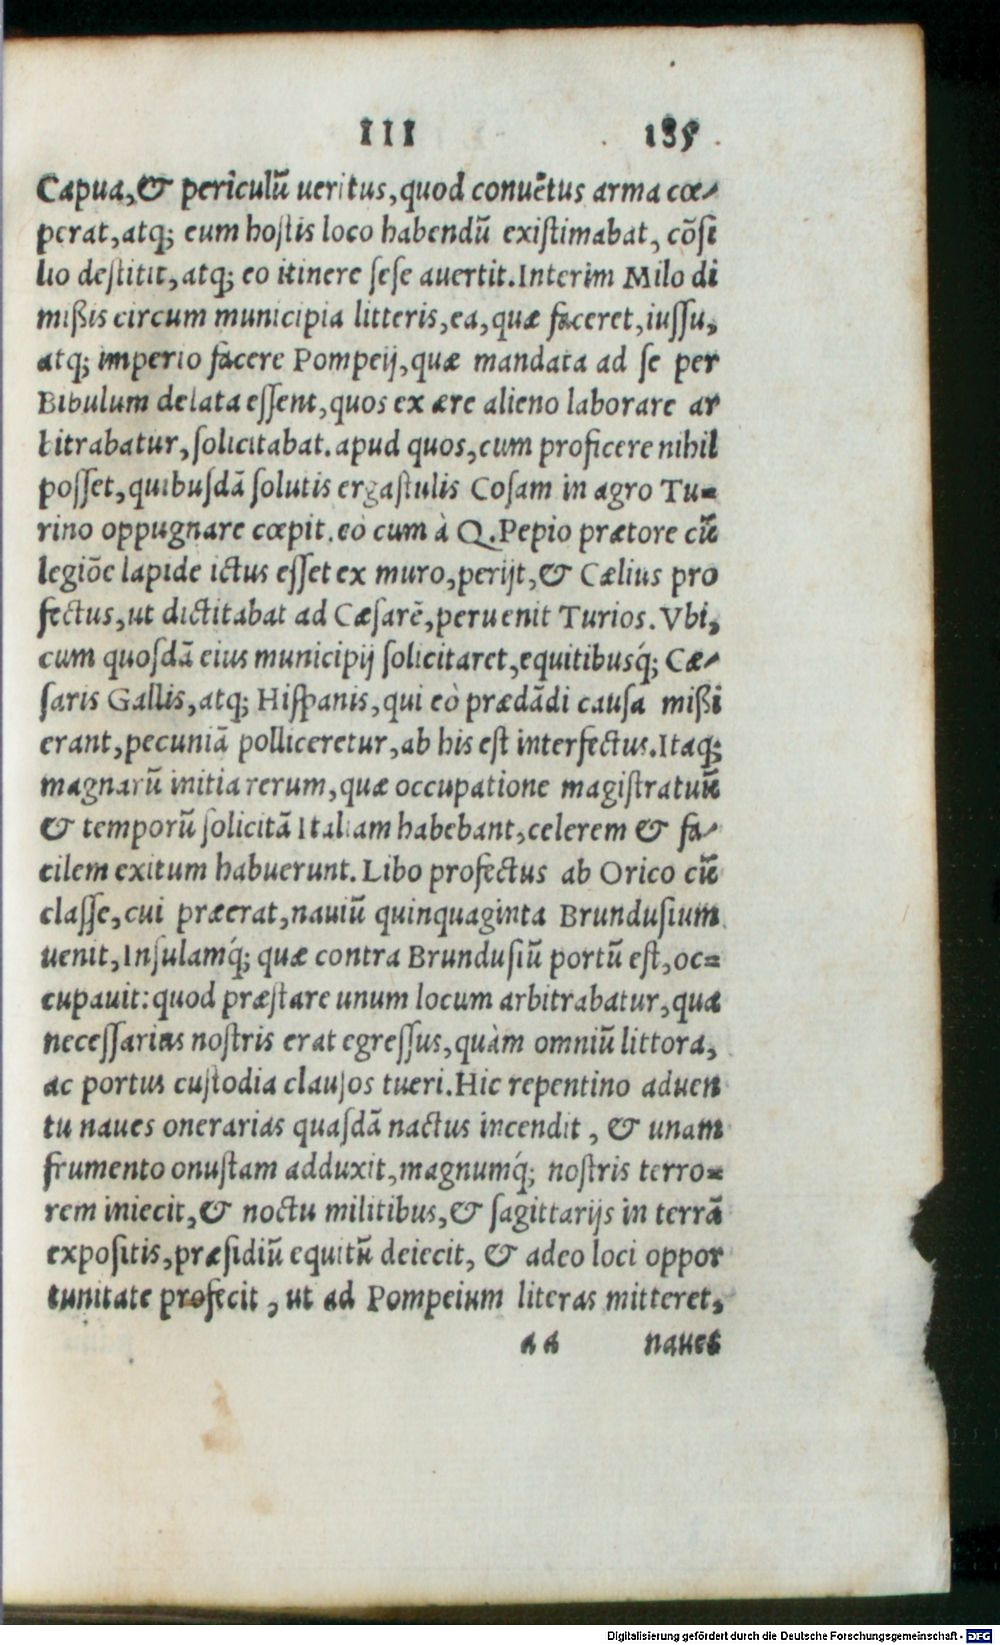 III 185
Capua,& periculū ueritus,quod conuētus arma cœ-
perat,atq; eum hoſtis loco habendū exiſtimabat, cōſi
lio deſtitit,atq; eo itinere ſeſe auertit.Interim Milo di
mißis circum municipia litteris,ea,quæ faceret,iuſſu,
atq; imperio facere Pompeij,quæ mandata ad ſe per
Bibulum delata eſſent,quos ex ære alieno laborare ar
bitrabatur,ſolicitabat.apud quos,cum proficere nihil
poſſet,quibuſdā ſolutis ergaſtulis Coſam in agro Tu=
rino oppugnare cœpit.eò cum à Q.Pepio prætore cū
legiōe lapide ictus eſſet ex muro,perijt,& Cælius pro
fectus,ut dictitabat ad Cæſarē,peruenit Turios.Vbi,
cum quoſdā eius municipij ſolicitaret,equitibusq́; Cæ-
ſaris Gallis,atq; Hiſpanis,qui eò prædādi cauſa mißi
erant,pecuniā polliceretur,ab his eſt interfectus.Itaq;
magnarū initia rerum,quæ occupatione magiſtratuū
& temporū ſolicitā Italiam habebant,celerem & fa-
cilem exitum habuerunt.Libo profectus ab Orico cū
claſſe,cui præerat,nauiū quinquaginta Brunduſium
uenit,Inſulamq́; quæ contra Brunduſiū portū eſt,oc=
cupauit:quod præſtare unum locum arbitrabatur,qua
neceſſarius noſtris erat egreſſus,quàm omniū littora,
ac portus cuſtodia clauſos tueri.Hic repentino aduen
tu naues onerarias quaſdā nactus incendit, & unam
frumento onuſtam adduxit,magnumq́; noſtris terro=
rem iniecit,& noctu militibus,& ſagittarijs in terrā
expoſitis,præſidiū equitū deiecit, & adeo loci oppor
tunitate profecit, ut ad Pompeium literas mitteret,
aa naues
Digitalisierung gefördert durch die Deutsche Forschungsgemeinschaft - DFG